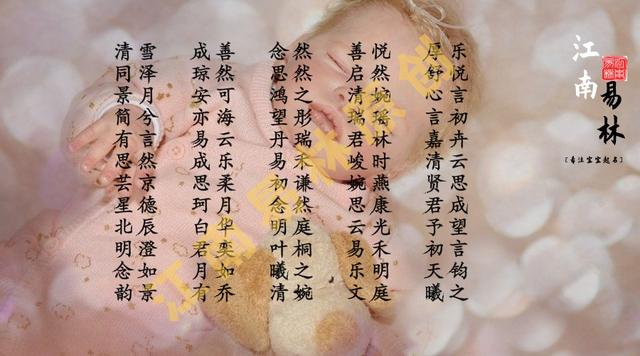 江南
易林
【专注宝宝起名】
乐悦言初卉云思成望言钧之
厚舒心言嘉清贤君予初天曦
悦然婉瑞林时燕康光禾明庭
善启清瑞君峻婉思云易乐文
然然之彤瑞禾谦然庭桐之婉
念思鸿望丹易初念明叶曦清
善然可海云乐柔月华奕如乔
成琼安亦易成思珂白君月有
雪泽月兮言然京德辰澄如景
清同景简有思芸星北明念韵
江南易林原创